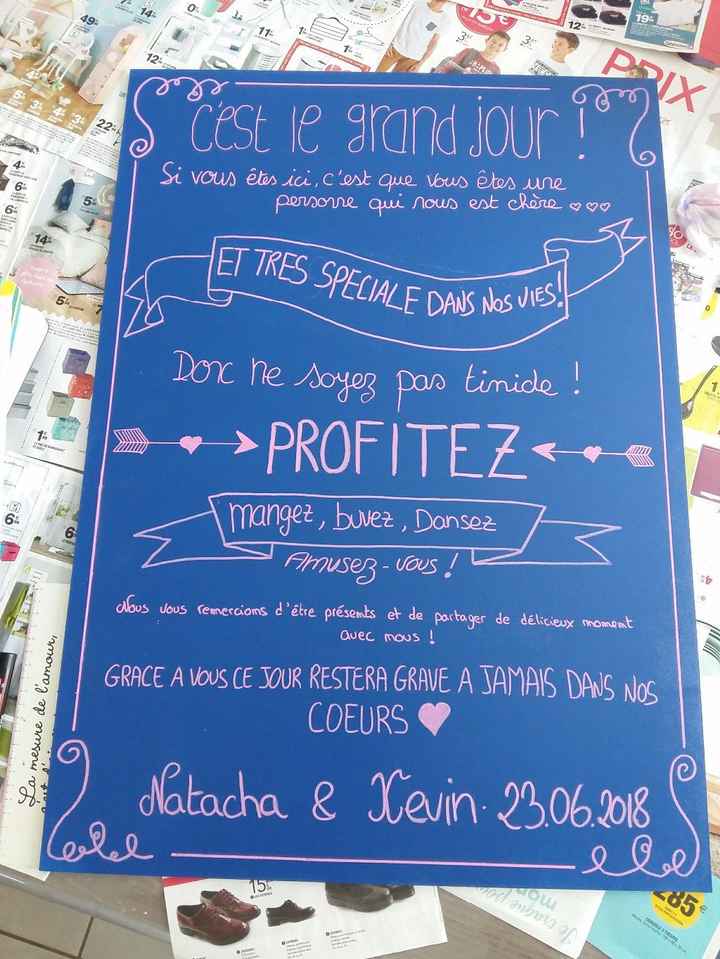 C'est le grand jour !
Si vous êtes ici, c'est que vous êtes une
personne qui nous est chère ♡♡♡
ET TRES SPECIALE DANS NOS VIES!
Donc ne soyez pas timide !
PROFITEZ
mangez, buvez, Dansez
Amusez-vous !
Nous vous remercions d'être présents et de partager de délicieux moment
avec nous !
GRACE A VOUS CE JOUR RESTERA GRAVE A JAMAIS DANS NOS
COEURS ♥
Natacha & Kevin. 23.06.2018
La mesure de l'amour,
PRIX
15€
285€
Je craque pour
mon